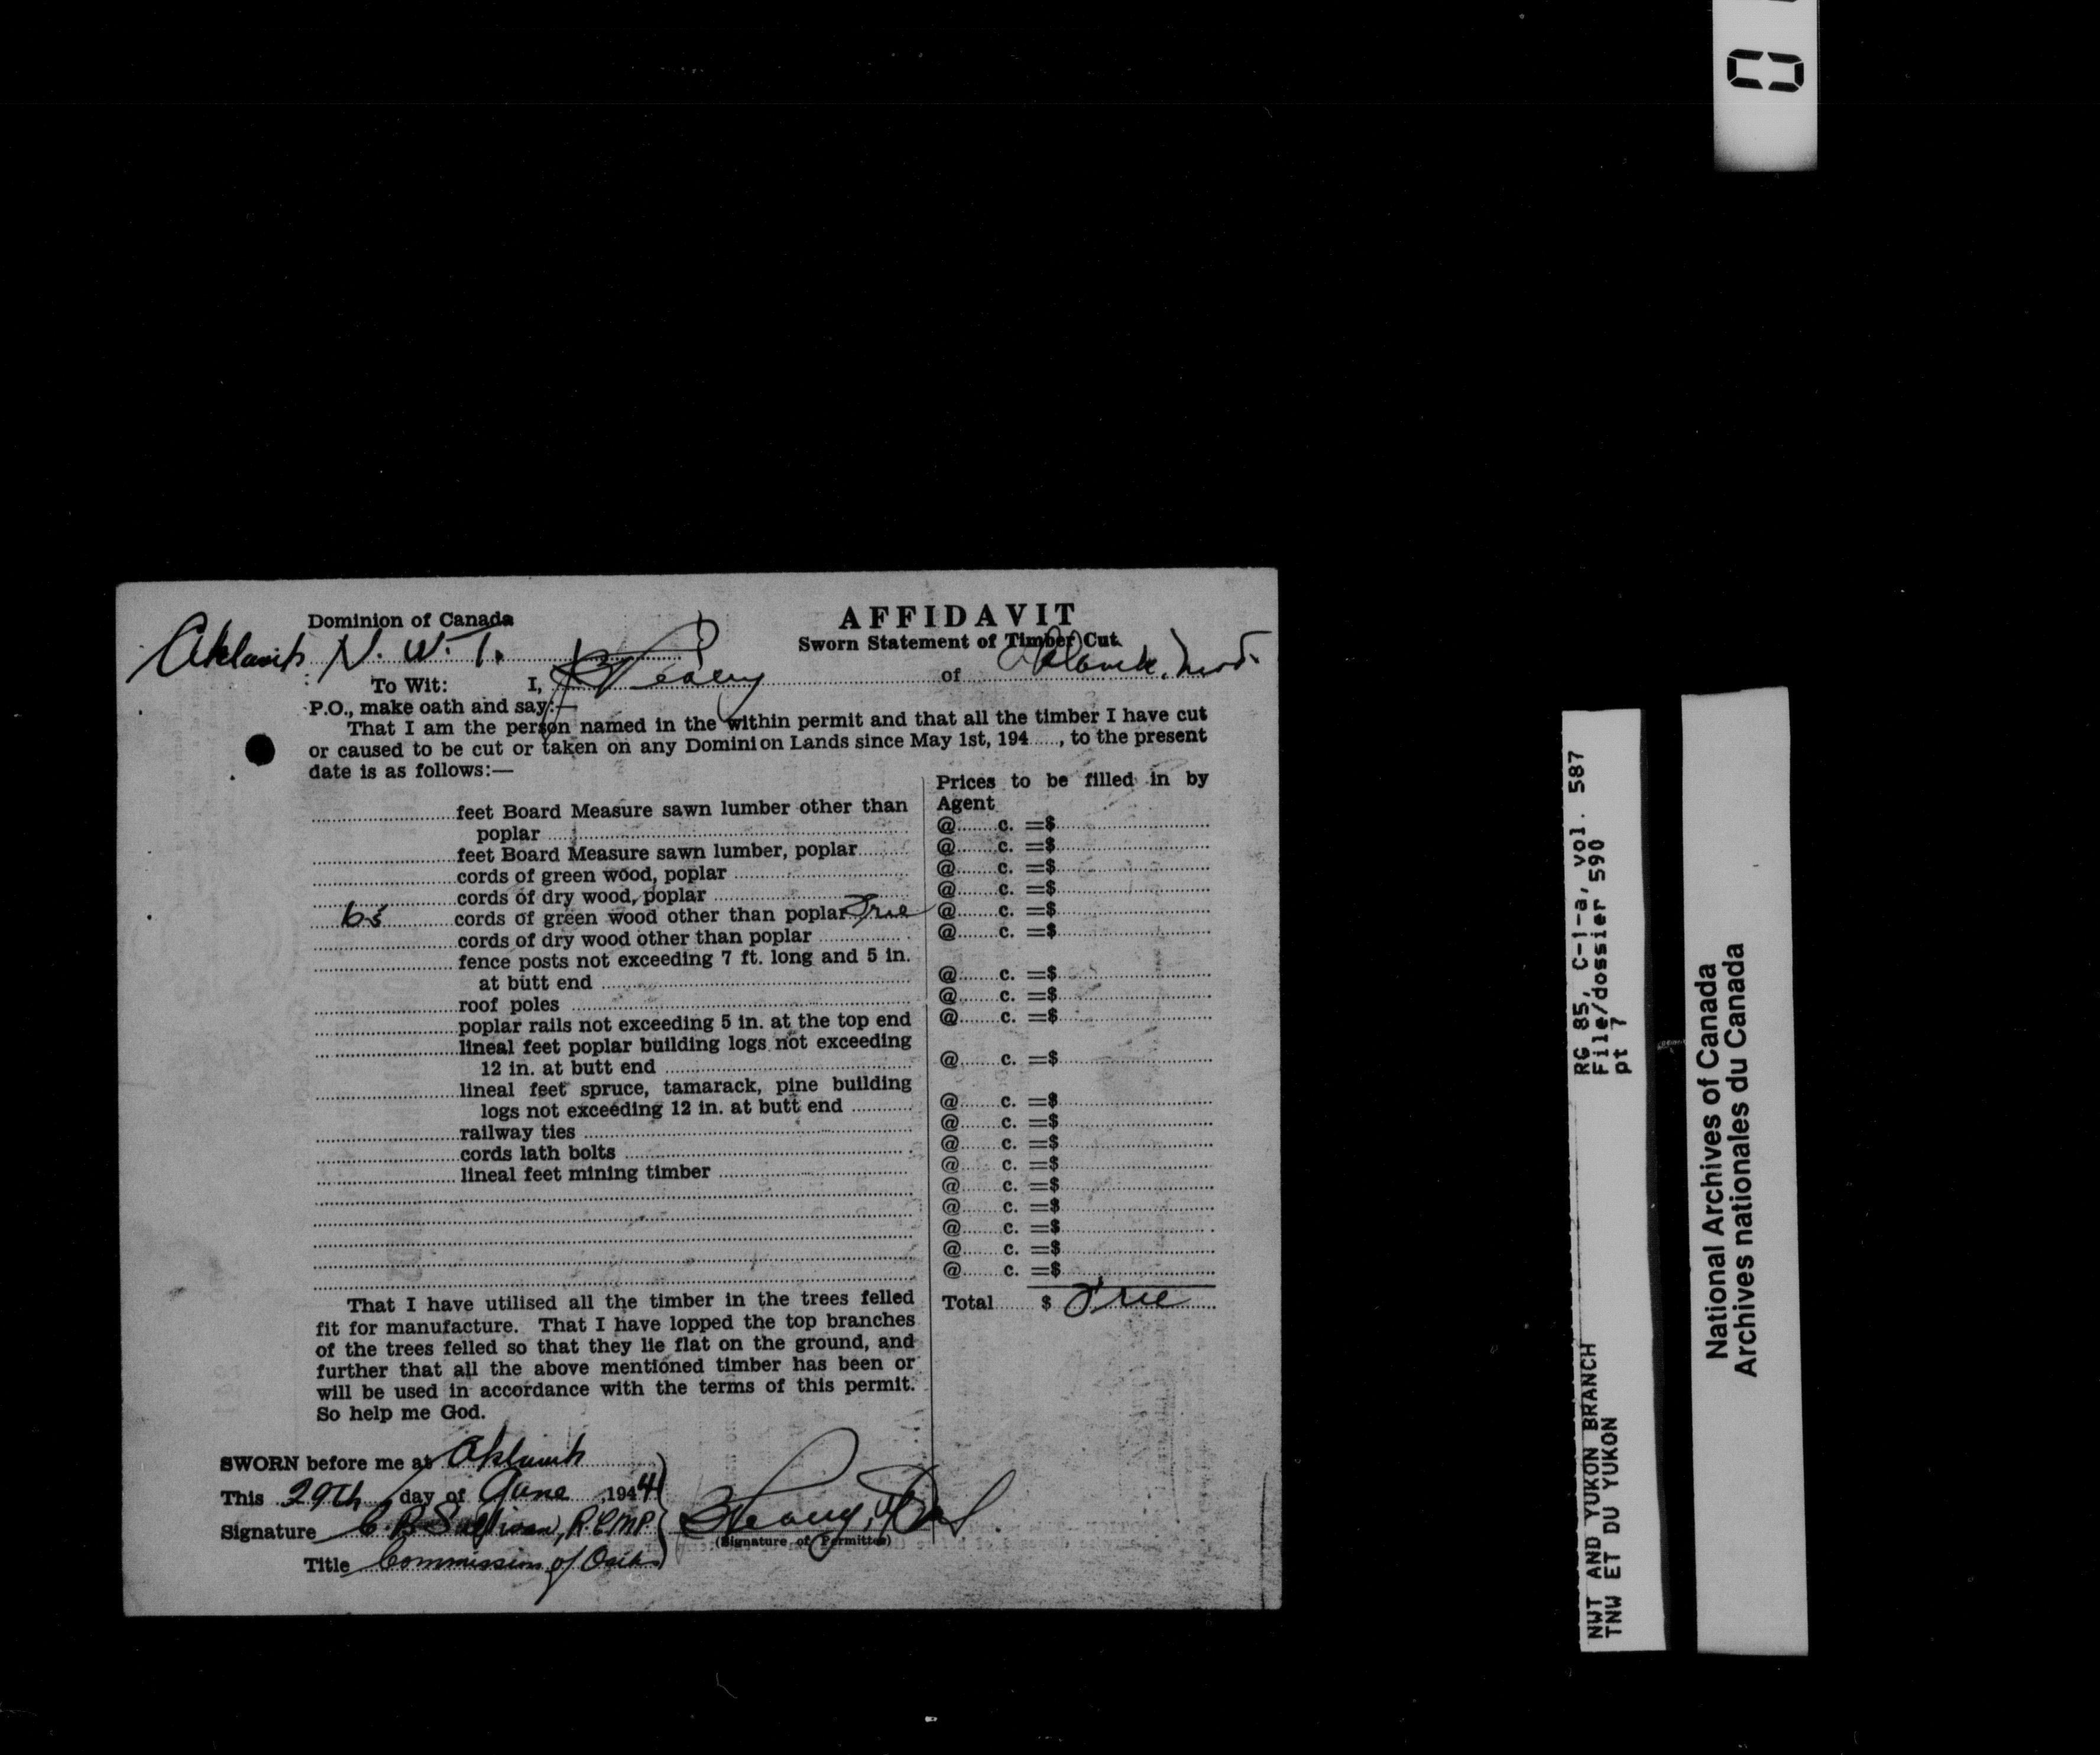 Dominion of Canada
AFFIDAVIT
Sworn Statement of Timber Cut
Aklavik N. W. T.
To Wit: I, of Aklavik. Nwt.
P.O., make oath and say:—
That I am the person named in the within permit and that all the timber I have cut
or caused to be cut or taken on any Dominion Lands since May 1st, 194....., to the present
date is as follows:—
Prices to be filled in by
Agent
feet Board Measure sawn lumber other than
poplar @ c. =$
feet Board Measure sawn lumber, poplar @ c. =$
cords of green wood, poplar @ c. =$
cords of dry wood, poplar @ c. =$
cords of green wood other than poplar Free @ c. =$
cords of dry wood other than poplar @ c. =$
fence posts not exceeding 7 ft. long and 5 in.
at butt end @ c. =$
roof poles @ c. =$
poplar rails not exceeding 5 in. at the top end @ c. =$
lineal feet poplar building logs not exceeding
12 in. at butt end @ c. =$
lineal feet spruce, tamarack, pine building
logs not exceeding 12 in. at butt end @ c. =$
railway ties @ c. =$
cords lath bolts @ c. =$
lineal feet mining timber @ c. =$
@ c. =$
@ c. =$
@ c. =$
@ c. =$
@ c. =$
Total $ Free
That I have utilised all the timber in the trees felled
fit for manufacture. That I have lopped the top branches
of the trees felled so that they lie flat on the ground, and
further that all the above mentioned timber has been or
will be used in accordance with the terms of this permit.
So help me God.
SWORN before me at Aklavik
This 29th day of June, 1944
Signature Sullivan, R.C.M.P.
(Signature of Permittee)
Title Commission of Oaths
RG 85, C-1-a, vol. 587
File/dossier 590
pt 7
NWT AND YUKON BRANCH
TNW ET DU YUKON
National Archives of Canada
Archives nationales du Canada